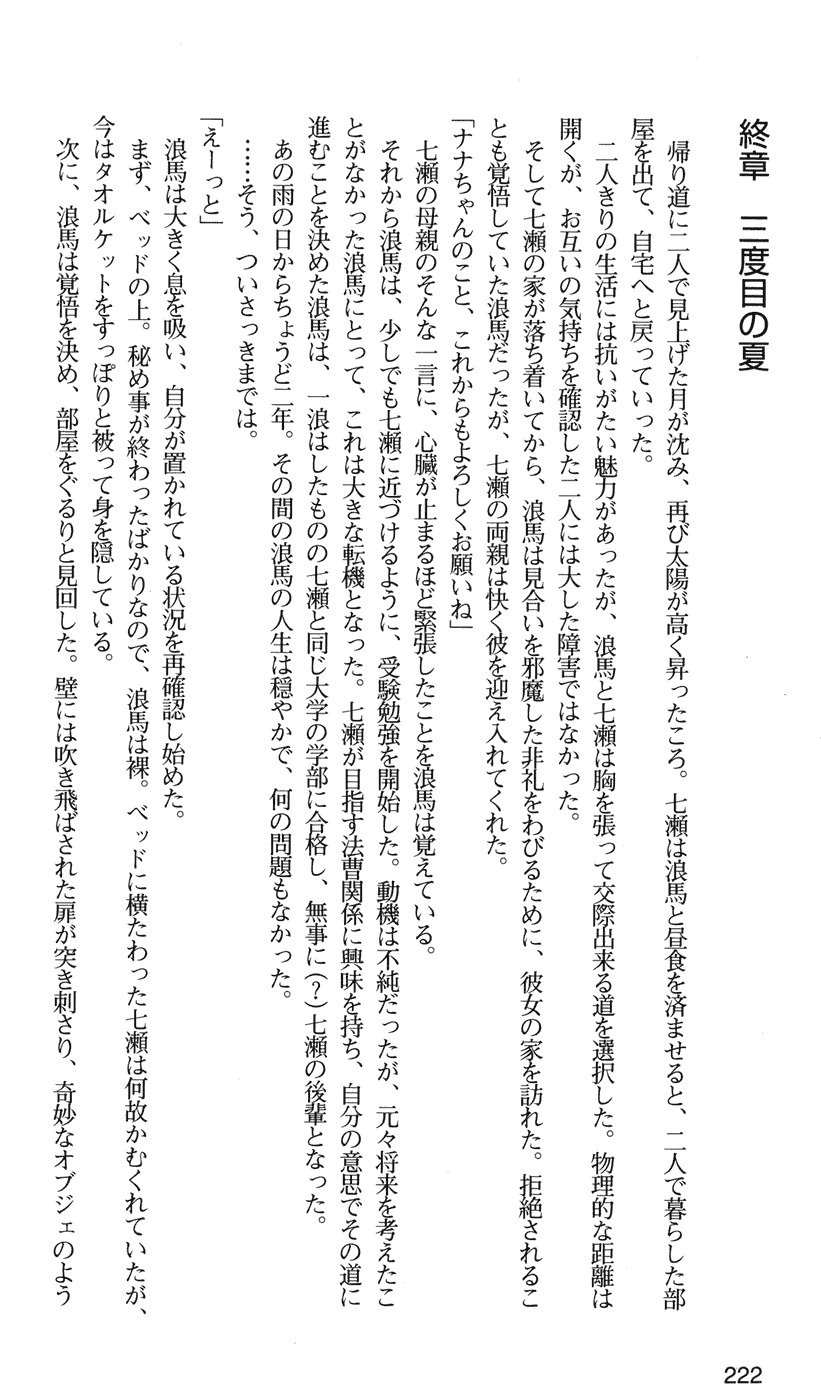 終章　三度目の夏
　帰り道に二人で見上げた月が沈み、再び太陽が高く昇ったころ。七瀬は浪馬と昼食を済ませると、二人で暮らした部
屋を出て、自宅へと戻っていった。
　二人きりの生活には抗いがたい魅力があったが、浪馬と七瀬は胸を張って交際出来る道を選択した。物理的な距離は
開くが、お互いの気持ちを確認した二人には大した障害ではなかった。
　そして七瀬の家が落ち着いてから、浪馬は見合いを邪魔した非礼をわびるために、彼女の家を訪れた。拒絶されるこ
とも覚悟していた浪馬だったが、七瀬の両親は快く彼を迎え入れてくれた。
「ナナちゃんのこと、これからもよろしくお願いね」
　七瀬の母親のそんな一言に、心臓が止まるほど緊張したことを浪馬は覚えている。
　それから浪馬は、少しでも七瀬に近づけるように、受験勉強を開始した。動機は不純だったが、元々将来を考えたこ
とがなかった浪馬にとって、これは大きな転機となった。七瀬が目指す法曹関係に興味を持ち、自分の意思でその道に
進むことを決めた浪馬は、一浪はしたものの七瀬と同じ大学の学部に合格し、無事に（？）七瀬の後輩となった。
　あの雨の日からちょうど二年。その間の浪馬の人生は穏やかで、何の問題もなかった。
　……そう、ついさっきまでは。
「えーっと」
　浪馬は大きく息を吸い、自分が置かれている状況を再確認し始めた。
　まず、ベッドの上。秘め事が終わったばかりなので、浪馬は裸。ベッドに横たわった七瀬は何故かむくれていたが、
今はタオルケットをすっぽりと被って身を隠している。
　次に、浪馬は覚悟を決め、部屋をぐるりと見回した。壁には吹き飛ばされた扉が突き刺さり、奇妙なオブジェのよう
222